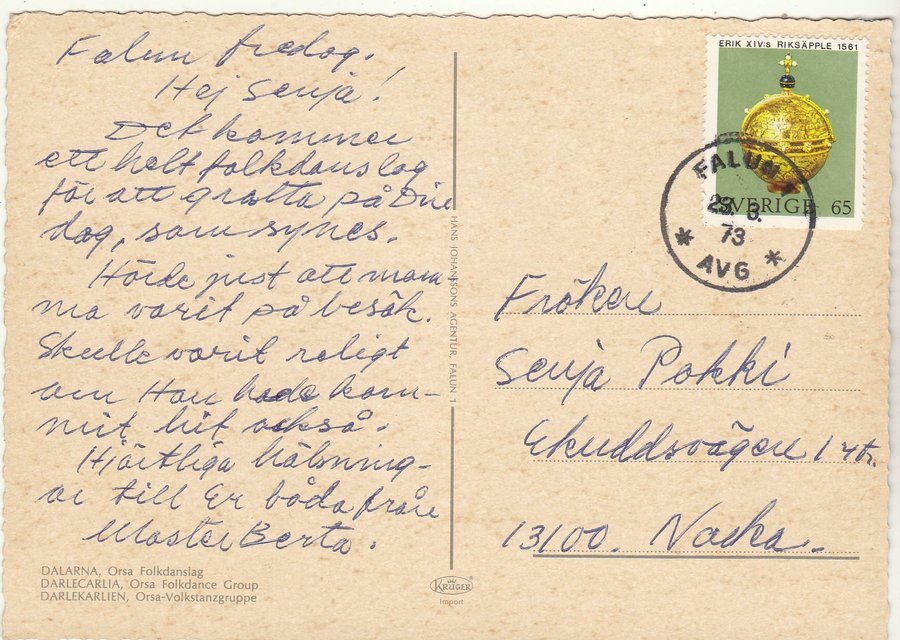 Falun fredag.
Hej Senja!
Det kommer
ett helt folkdanslag
för att gratta på Din
dag, som synes.
Hörde just att mam
ma varit på besök.
Skulle varit roligt
om Hon hade kom-
mit hit också.
Hjärtliga hälsning-
ar till Er båda från
Moster Berta.
DALARNA, Orsa Folkdanslag
DARLECARLIA, Orsa Folkdance Group
DARLEKARLIEN, Orsa-Volkstanzgruppe
HANS JOHANSSONS AGENTUR, FALUN 1
KRÜGER
Import
ERIK XIV:S RIKSÄPPLE 1561
SVERIGE 65
FALUN
8.
73
AVG
Fröken
Senja Pokki
Ekuddsvägen 1
13100. Nacka.